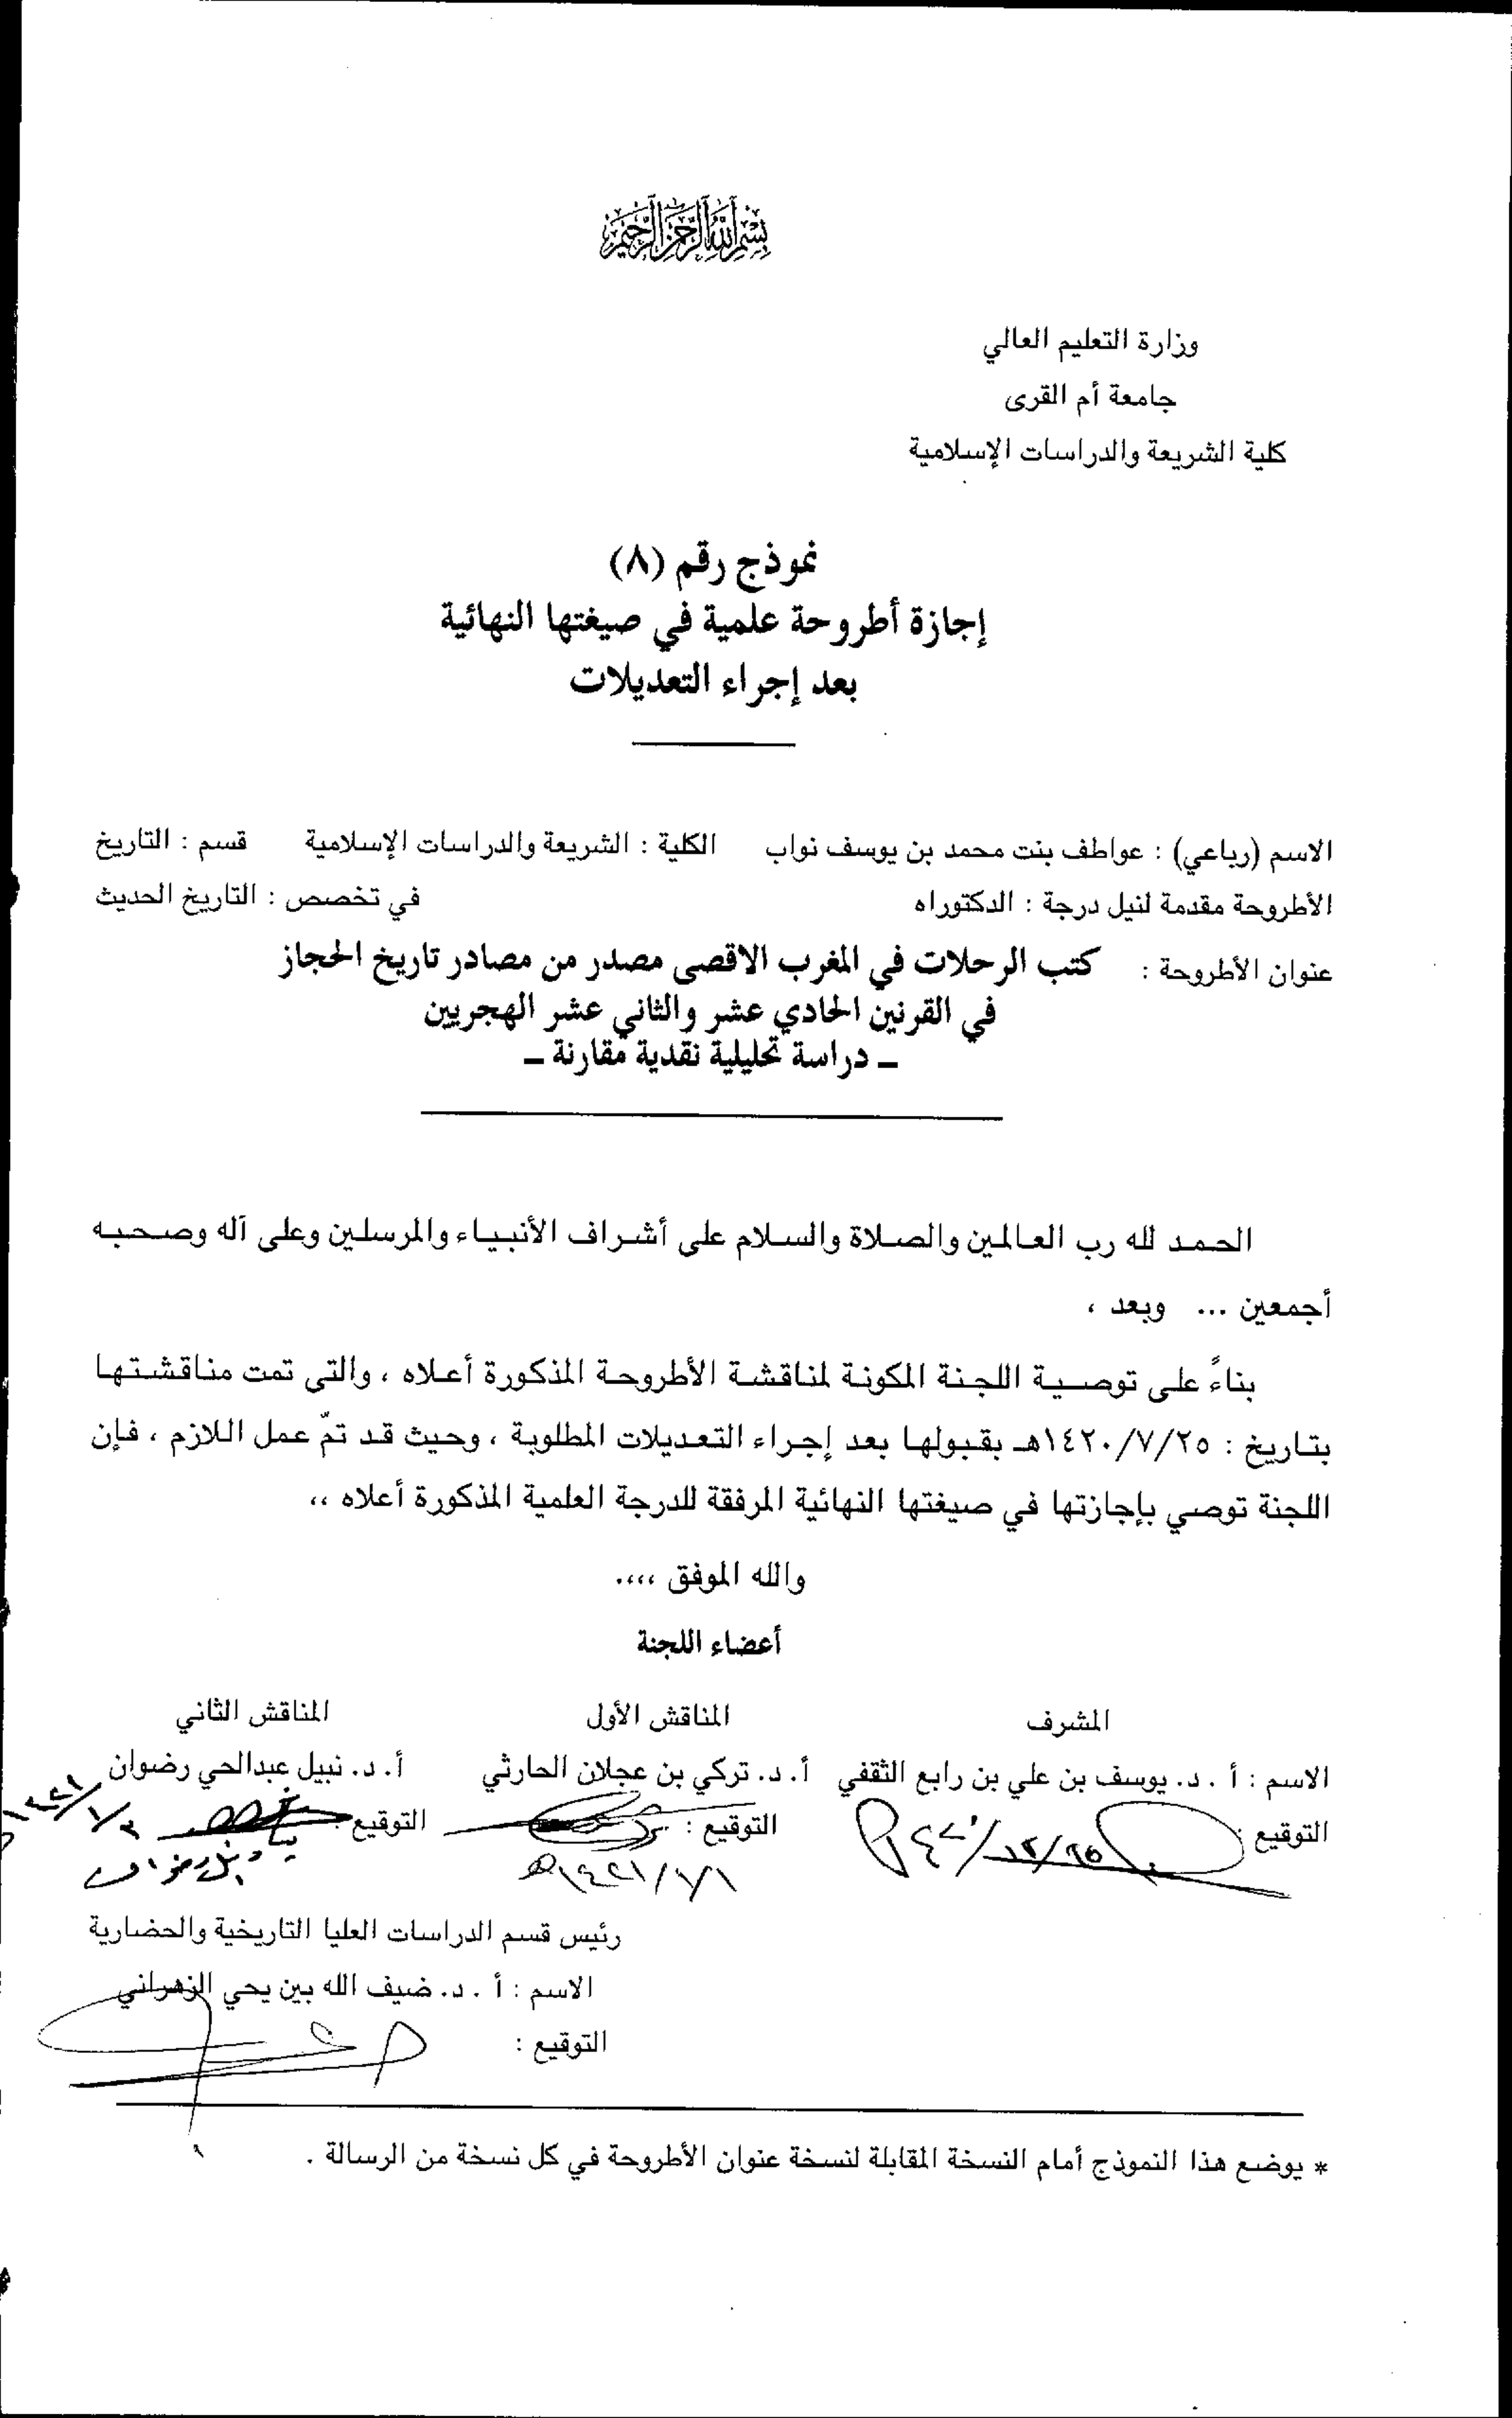 بسم الله الرحمن الرحيم
وزارة التعليم العالي
جامعة أم القرى
كلية الشريعة والدراسات الإسلامية
نموذج رقم (٨)
إجازة أطروحة علمية في صيغتها النهائية
بعد إجراء التعديلات
الاسم (رباعي) : عواطف بنت محمد بن يوسف نواب الكلية : الشريعة والدراسات الإسلامية قسم : التاريخ
الأطروحة مقدمة لنيل درجة : الدكتوراه في تخصص : التاريخ الحديث
عنوان الأطروحة : كتب الرحلات في المغرب الاقصى مصدر من مصادر تاريخ الحجاز
في القرنين الحادي عشر والثاني عشر الهجريين
ـ دراسة تحليلية نقدية مقارنة ـ
الحمد لله رب العالمين والصلاة والسلام على أشراف الأنبياء والمرسلين وعلى آله وصحبه
أجمعين ... وبعد ،
بناءً على توصية اللجنة المكونة لمناقشة الأطروحة المذكورة أعلاه ، والتى تمت مناقشتها
بتاريخ : ١٤٢٠/٧/٢٥هـ بقبولها بعد إجراء التعديلات المطلوبة ، وحيث قد تمّ عمل اللازم ، فإن
اللجنة توصي بإجازتها في صيغتها النهائية المرفقة للدرجة العلمية المذكورة أعلاه ،،
والله الموفق ،،،،
أعضاء اللجنة
المشرف المناقش الأول المناقش الثاني
الاسم : أ . د. يوسف بن علي بن رابع الثقفي أ. د. تركي بن عجلان الحارثي أ. د. نبيل عبدالحي رضوان
التوقيع : التوقيع : التوقيع
نبيل رضوان
رئيس قسم الدراسات العليا التاريخية والحضارية
الاسم : أ . د. ضيف الله بين يحي الزهراني
التوقيع :
* يوضع هذا النموذج أمام النسخة المقابلة لنسخة عنوان الأطروحة في كل نسخة من الرسالة .